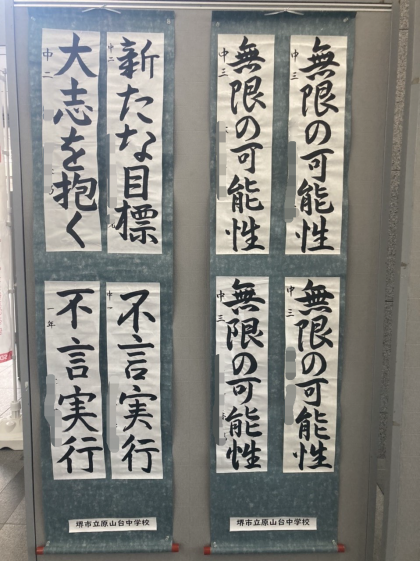 無限の可能性
中三
無限の可能性
中三
無限の可能性
中三
無限の可能性
中三
堺市立原山台中学校
新たな目標
中二
大志を抱く
中二
不言実行
中一
不言実行
一年
堺市立原山台中学校